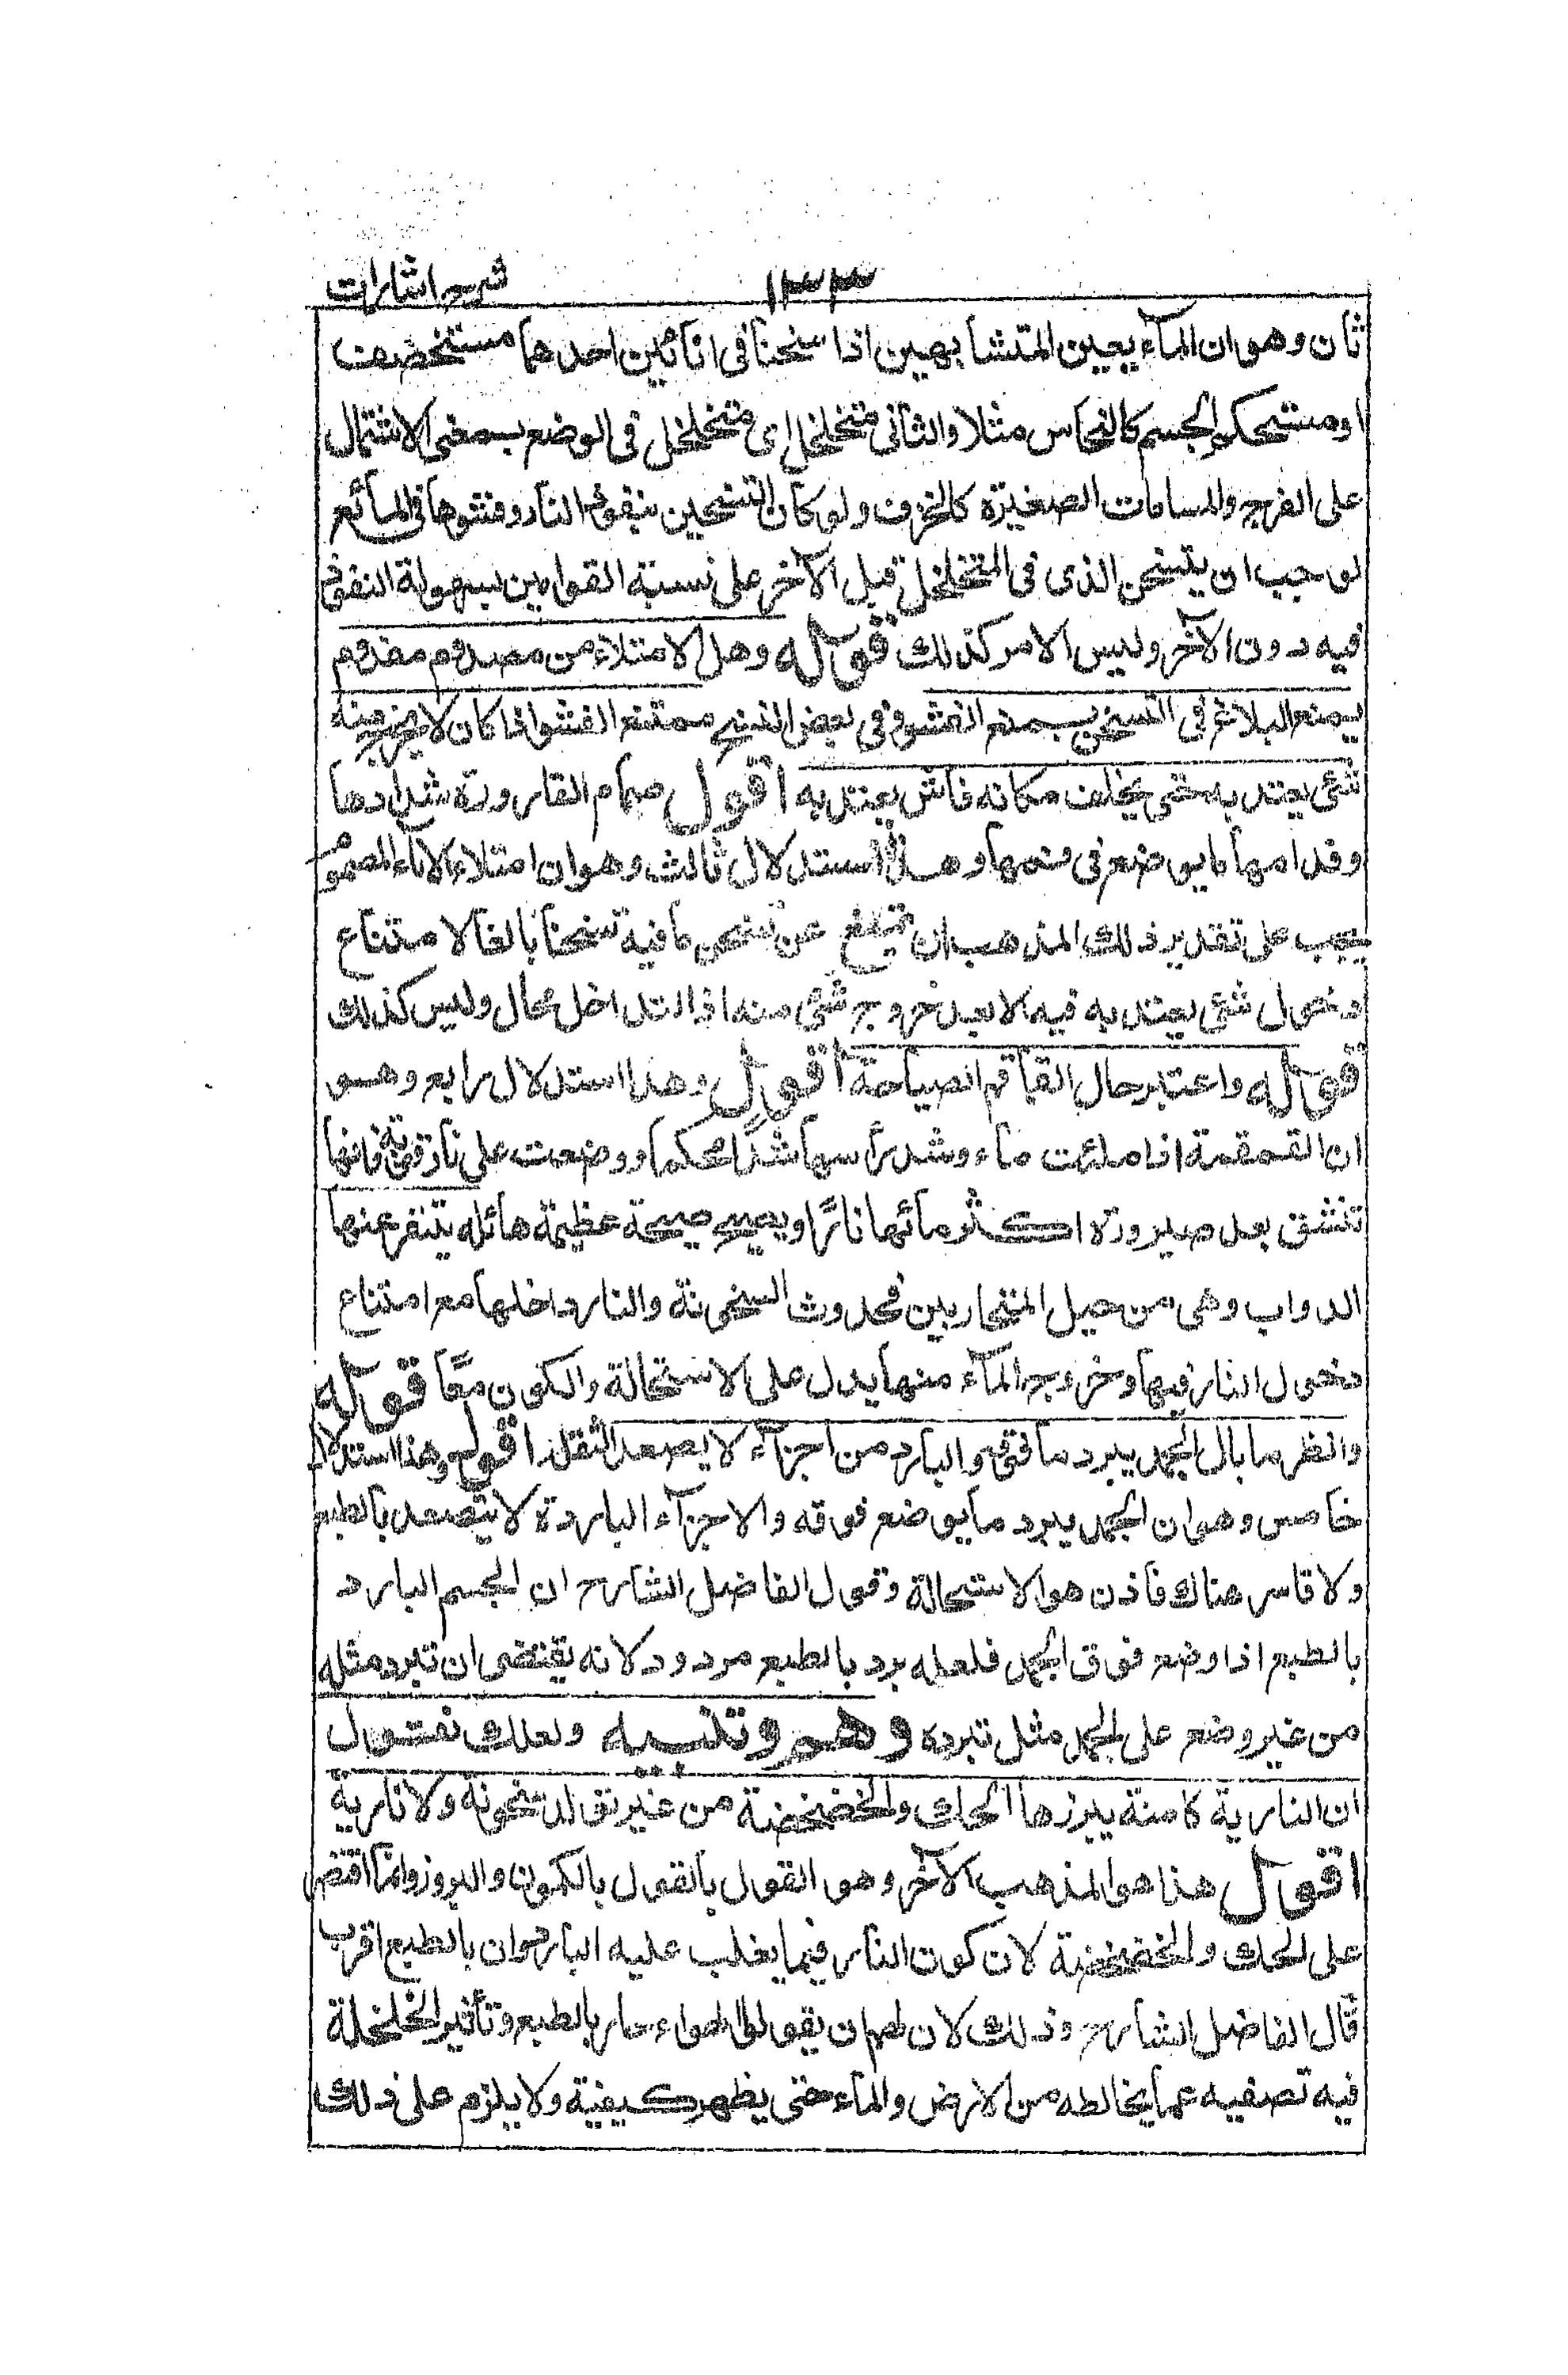 ١٣٣ شرح اشارات
ثان وهو ان المآء يعين المتشابهين اذا سخنا فى انائين احدهما مستخصف
او مستحكم الجسم كالنحاس مثلا والثانى متخلخل اى متخلخل فى الوضع بمعنى الاشتمال
على الفرج والمسامات الصغيرة كالخزف ولو كان التسخين بنفوذ النار وفشوها فى المائع
لوجب ان يتسخن الذى فى المتخلخل قبل الآخر على نسبة القوامين لسهولة النفوذ
فيه دون الآخر وليس الامر كذلك قوله وهل الامتلاء من مصموم مفدوم
يمنع البلاغ فى التسخن بمنع الفشو فى بعض التسخ ممتنع الفشو اذا كان لا يخرج منه
شئ يعتد به حتى يخلف مكانه فاش يعتد به اقول صمام القارورة شدادها
وفدامها ما يوضع فى فمها وهذا استدلال ثالث وهو ان امتلاء الاناء المصموم
يجب على تقدير ذلك المذهب ان يمتنع عن تسخن ما فيه تسخنا بالغا لامتناع
دخول شئ يعتد به فيه الا بعد خروج شئ منه اذ التداخل محال وليس كذلك
قوله واعتبر حال القماقم الصياحة اقول وهذا استدلال رابع وهو
ان القمقمة اذا ملئت ماء وشد رأسها شدا محكما ووضعت على نار قوية فانها
تنشق بعد صيرورة اكثر مائها نارًا ويصيح صيحة عظيمة هائلة يتنفر عنها
الدواب وهى من حيل المتحاربين فحدوث السخونة والنار داخلها مع امتناع
دخول النار فيها وخروج المآء منها يدل على الاستحالة والكون معًا قوله
وانظر ما بال الجمد يبرد ما فوقه والبارد من اجزآئه لا يصعد لثقله اقول وهذا استدلال
خامس وهو ان الجمد يبرد ما يوضع فوقه والاجزآء الباردة لا يتصعد بالطبع
ولا قاسر هناك فاذن هو الاستحالة وقول الفاضل الشارح ان الجسم البارد
بالطبع اذا وضع فوق الجمد فلعله برد بالطبع مردود لانه يقتضى ان تبرد مثله
من غير وضع على الجمد مثل تبرده وهم وتنبيه ولعلك تقول
ان النارية كامنة يبرزها الحك والخضخضة من غير تولد سخونة ولا نارية
اقول هذا هو المذهب الآخر وهو القول بالقول بالكمون والبروز وانما اقتصر
على الحك والخضخضة لان كون النار فيما يغلب عليه الباردان بالطبع اقرب
قال الفاضل الشارح وذلك لان لهم ان يقولوا الهواء حار بالطبع وتأثير الخلخلة
فيه تصفيه عما يخالطه من الارض والماء حتى يظهر كيفية ولا يلزم على ذلك